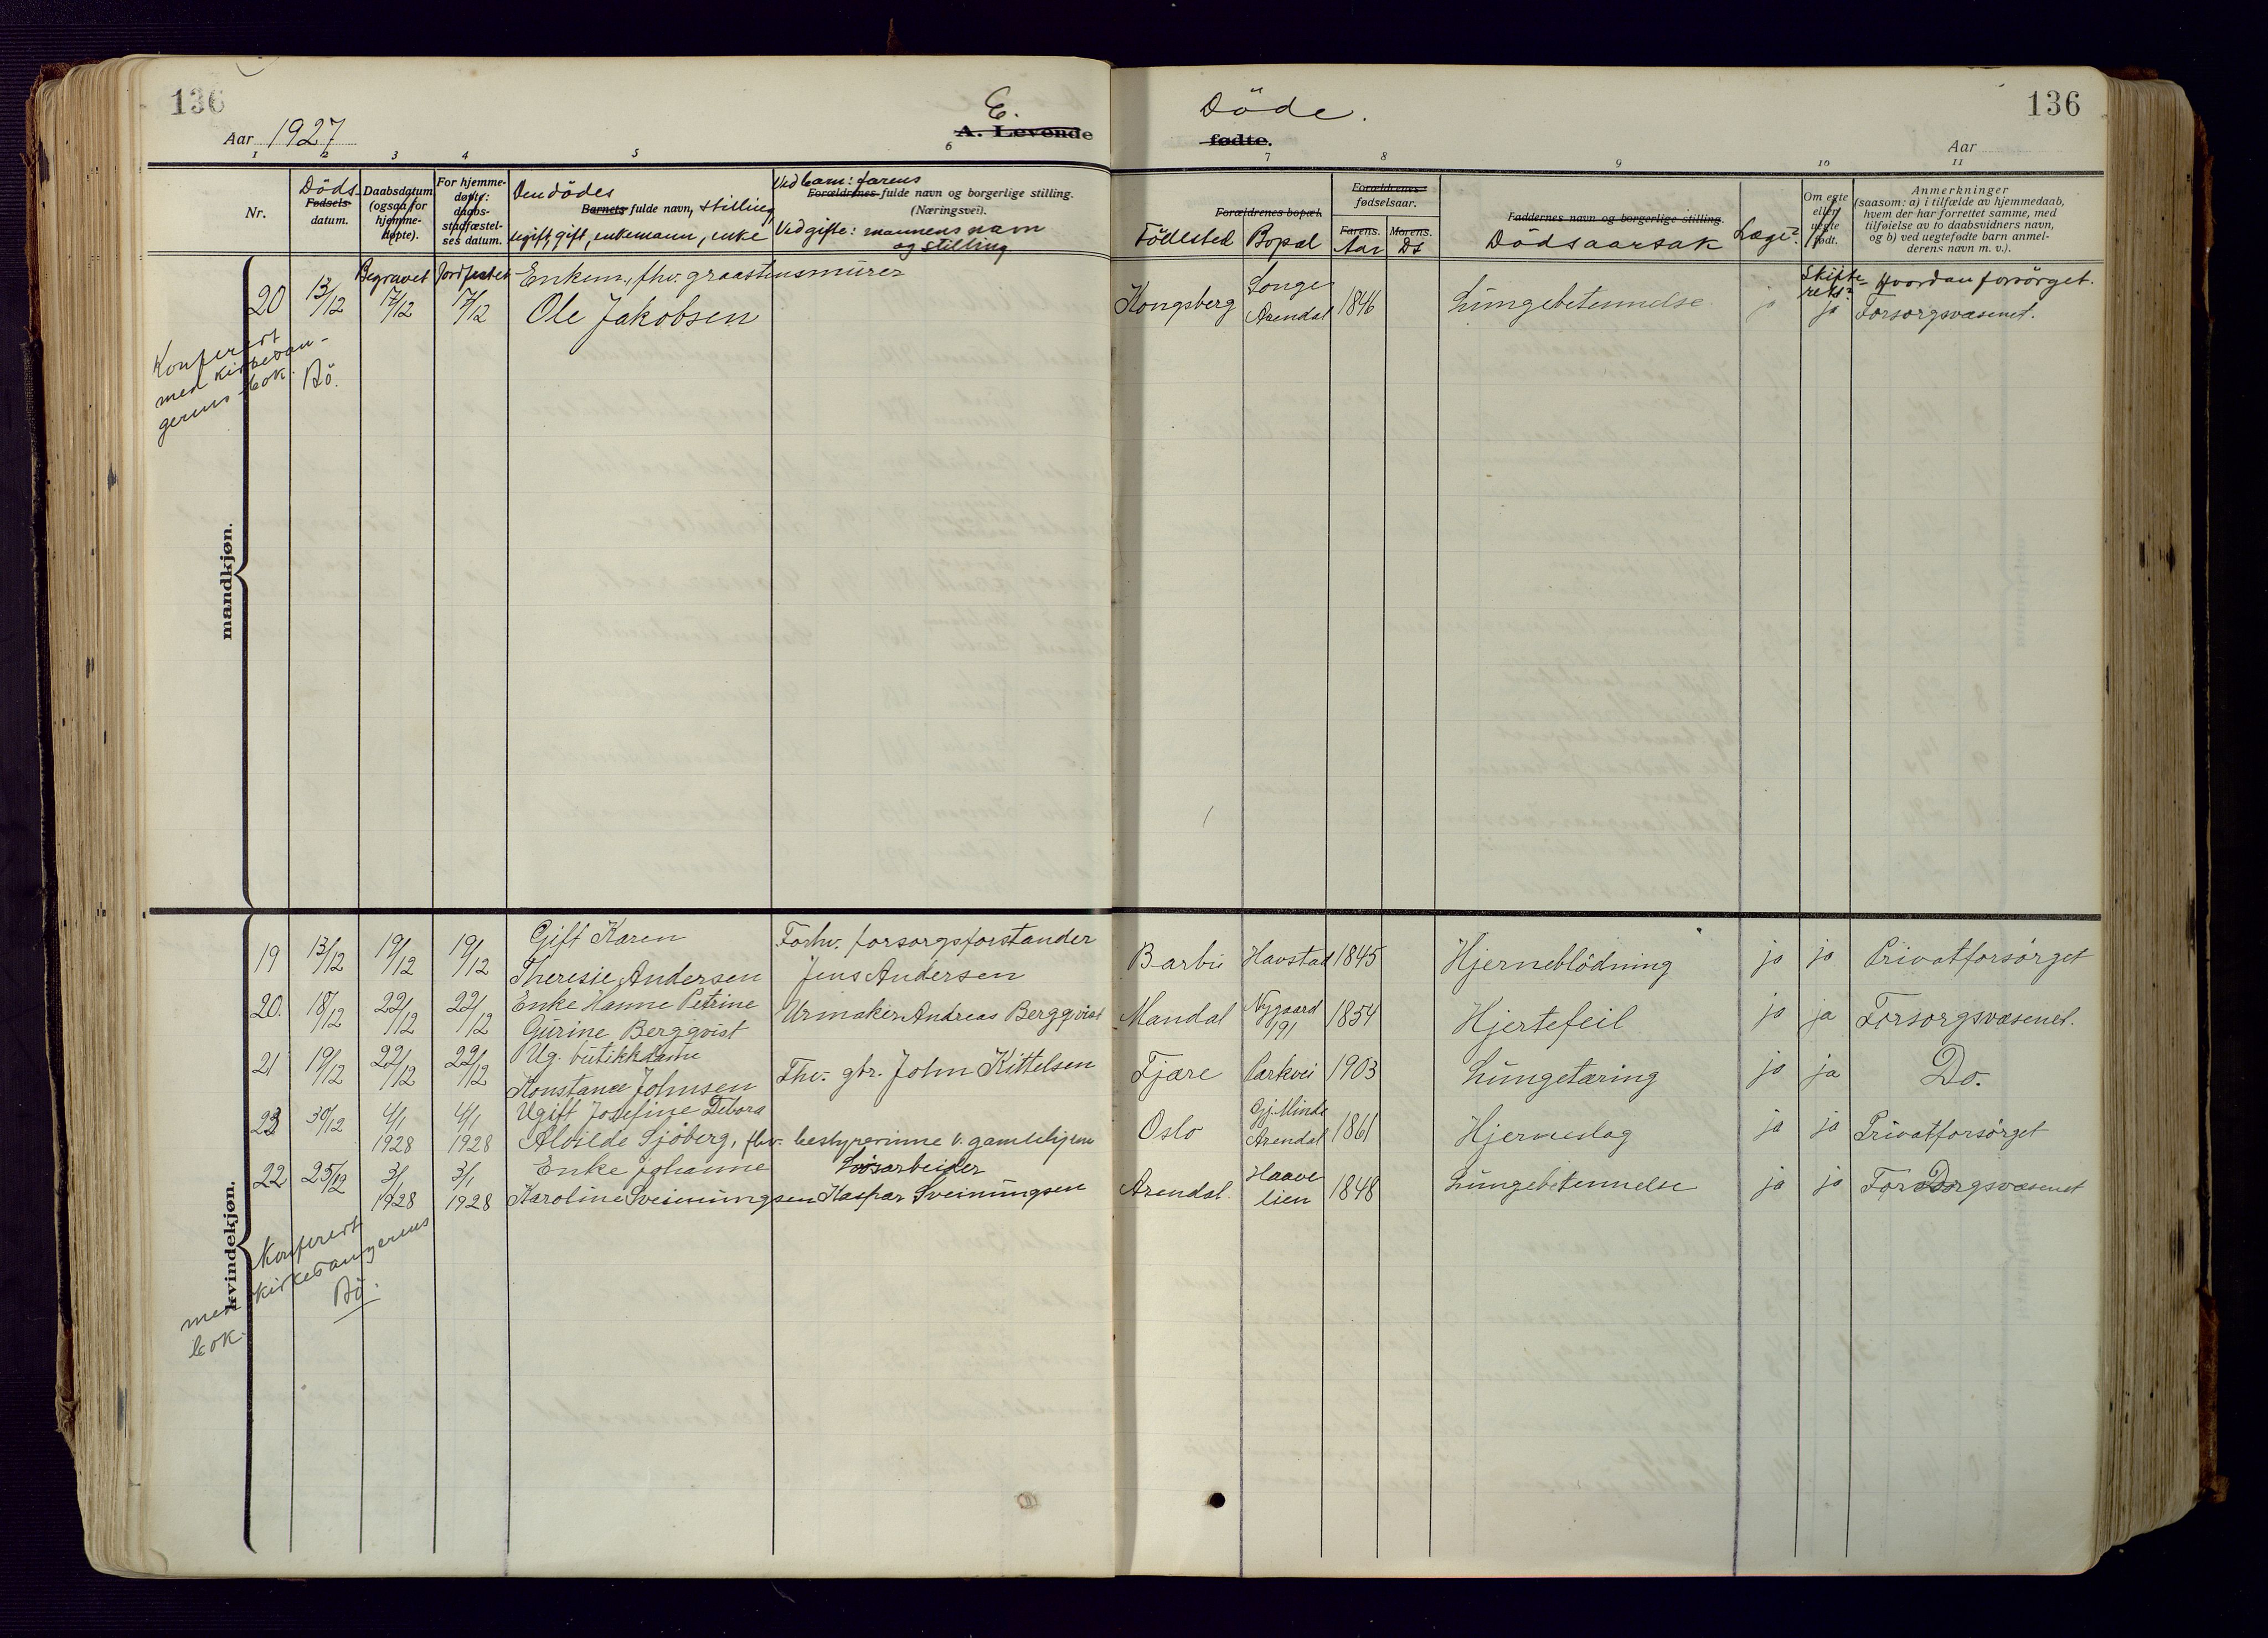 136
Aar 1927
E. Döde.
A. Levende fødte.
136
Aar
1 2 3 4 5 6 7 8 9 10 11
Nr.
Döds-
Fødsels-
datum.
Daabsdatum
(ogsaa for
hjemme-
døpte).
For hjemme-
døpte:
daabs-
stadfæstel-
ses datum.
Den dödes
Barnets fulde navn, stilling,
ugift, gift, enkemann, enke
Ved barn: farens
Forældrenes fulde navn og borgerlige stilling.
(Næringsvei).
Ved gifte: mannens navn
og stilling
Forældrenes bopæl.
Födested Bopæl
Forældrenes
fødselsaar.
Farens. Morens.
Aar Ds
Faddernes navn og borgerlige stilling.
Dödsaarsak Læge?
Om egte
eller
uegte
født.
Anmerkninger
(saasom: a) i tilfælde av hjemmedaab,
hvem der har forrettet samme, med
tilføielse av to daabsvidners navn,
og b) ved uegtefødte barn anmel-
derens navn m. v.).
Begravet Jordfestet
Skifte-
retts? Hvordan forsörget.
mandkjøn.
20 13/12 17/12 17/12 Enkem., fhv. graastensmurer
Ole Jakobsen Kongsberg Songe Arendal 1846 Lungebetennelse ja ja Forsorgsvæsenet.
Konferert
med kirkevan-
gerens bok. Bö.
kvindekjøn.
19 13/12 19/12 19/12 Gift Karen
Theresie Andersen Forhv. forsorgsforstander
Jens Andersen Barbu Havstad 1845 Hjerneblödning ja ja Privatforsörget
20. 18/12 22/12 22/12 Enke Hanne Petrine
Gurine Bergqvist Urmaker Andreas Bergqvist Mandal Nygaard 191 1854 Hjertefeil ja ja Forsorgsvæsenet.
21 19/12 22/12 22/12 Ug. butikkdame
Konstance Johnsen Fhv. gbr. John Kittelsen Fjære Parkvei 1903 Lungetæring ja ja Do.
23 30/12 4/1 1928 4/1 1928 Ugift Josefine Debora
Alvilde Sjöberg, fhv. bestyrerinne v. gamlehjem Oslo Gj. Minde Arendal 1861 Hjerneslag ja ja Privatforsörget
22 25/12 3/1 1928 3/1 1928 Enke Johanne
Karoline Sveinungsen Lösarbeider
Kaspar Sveinungsen Arendal. Haave lien 1848 Lungebetennelse ja ja Forsorgsvæsenet
Konferert
med kirkevangerens
bok. Bö.